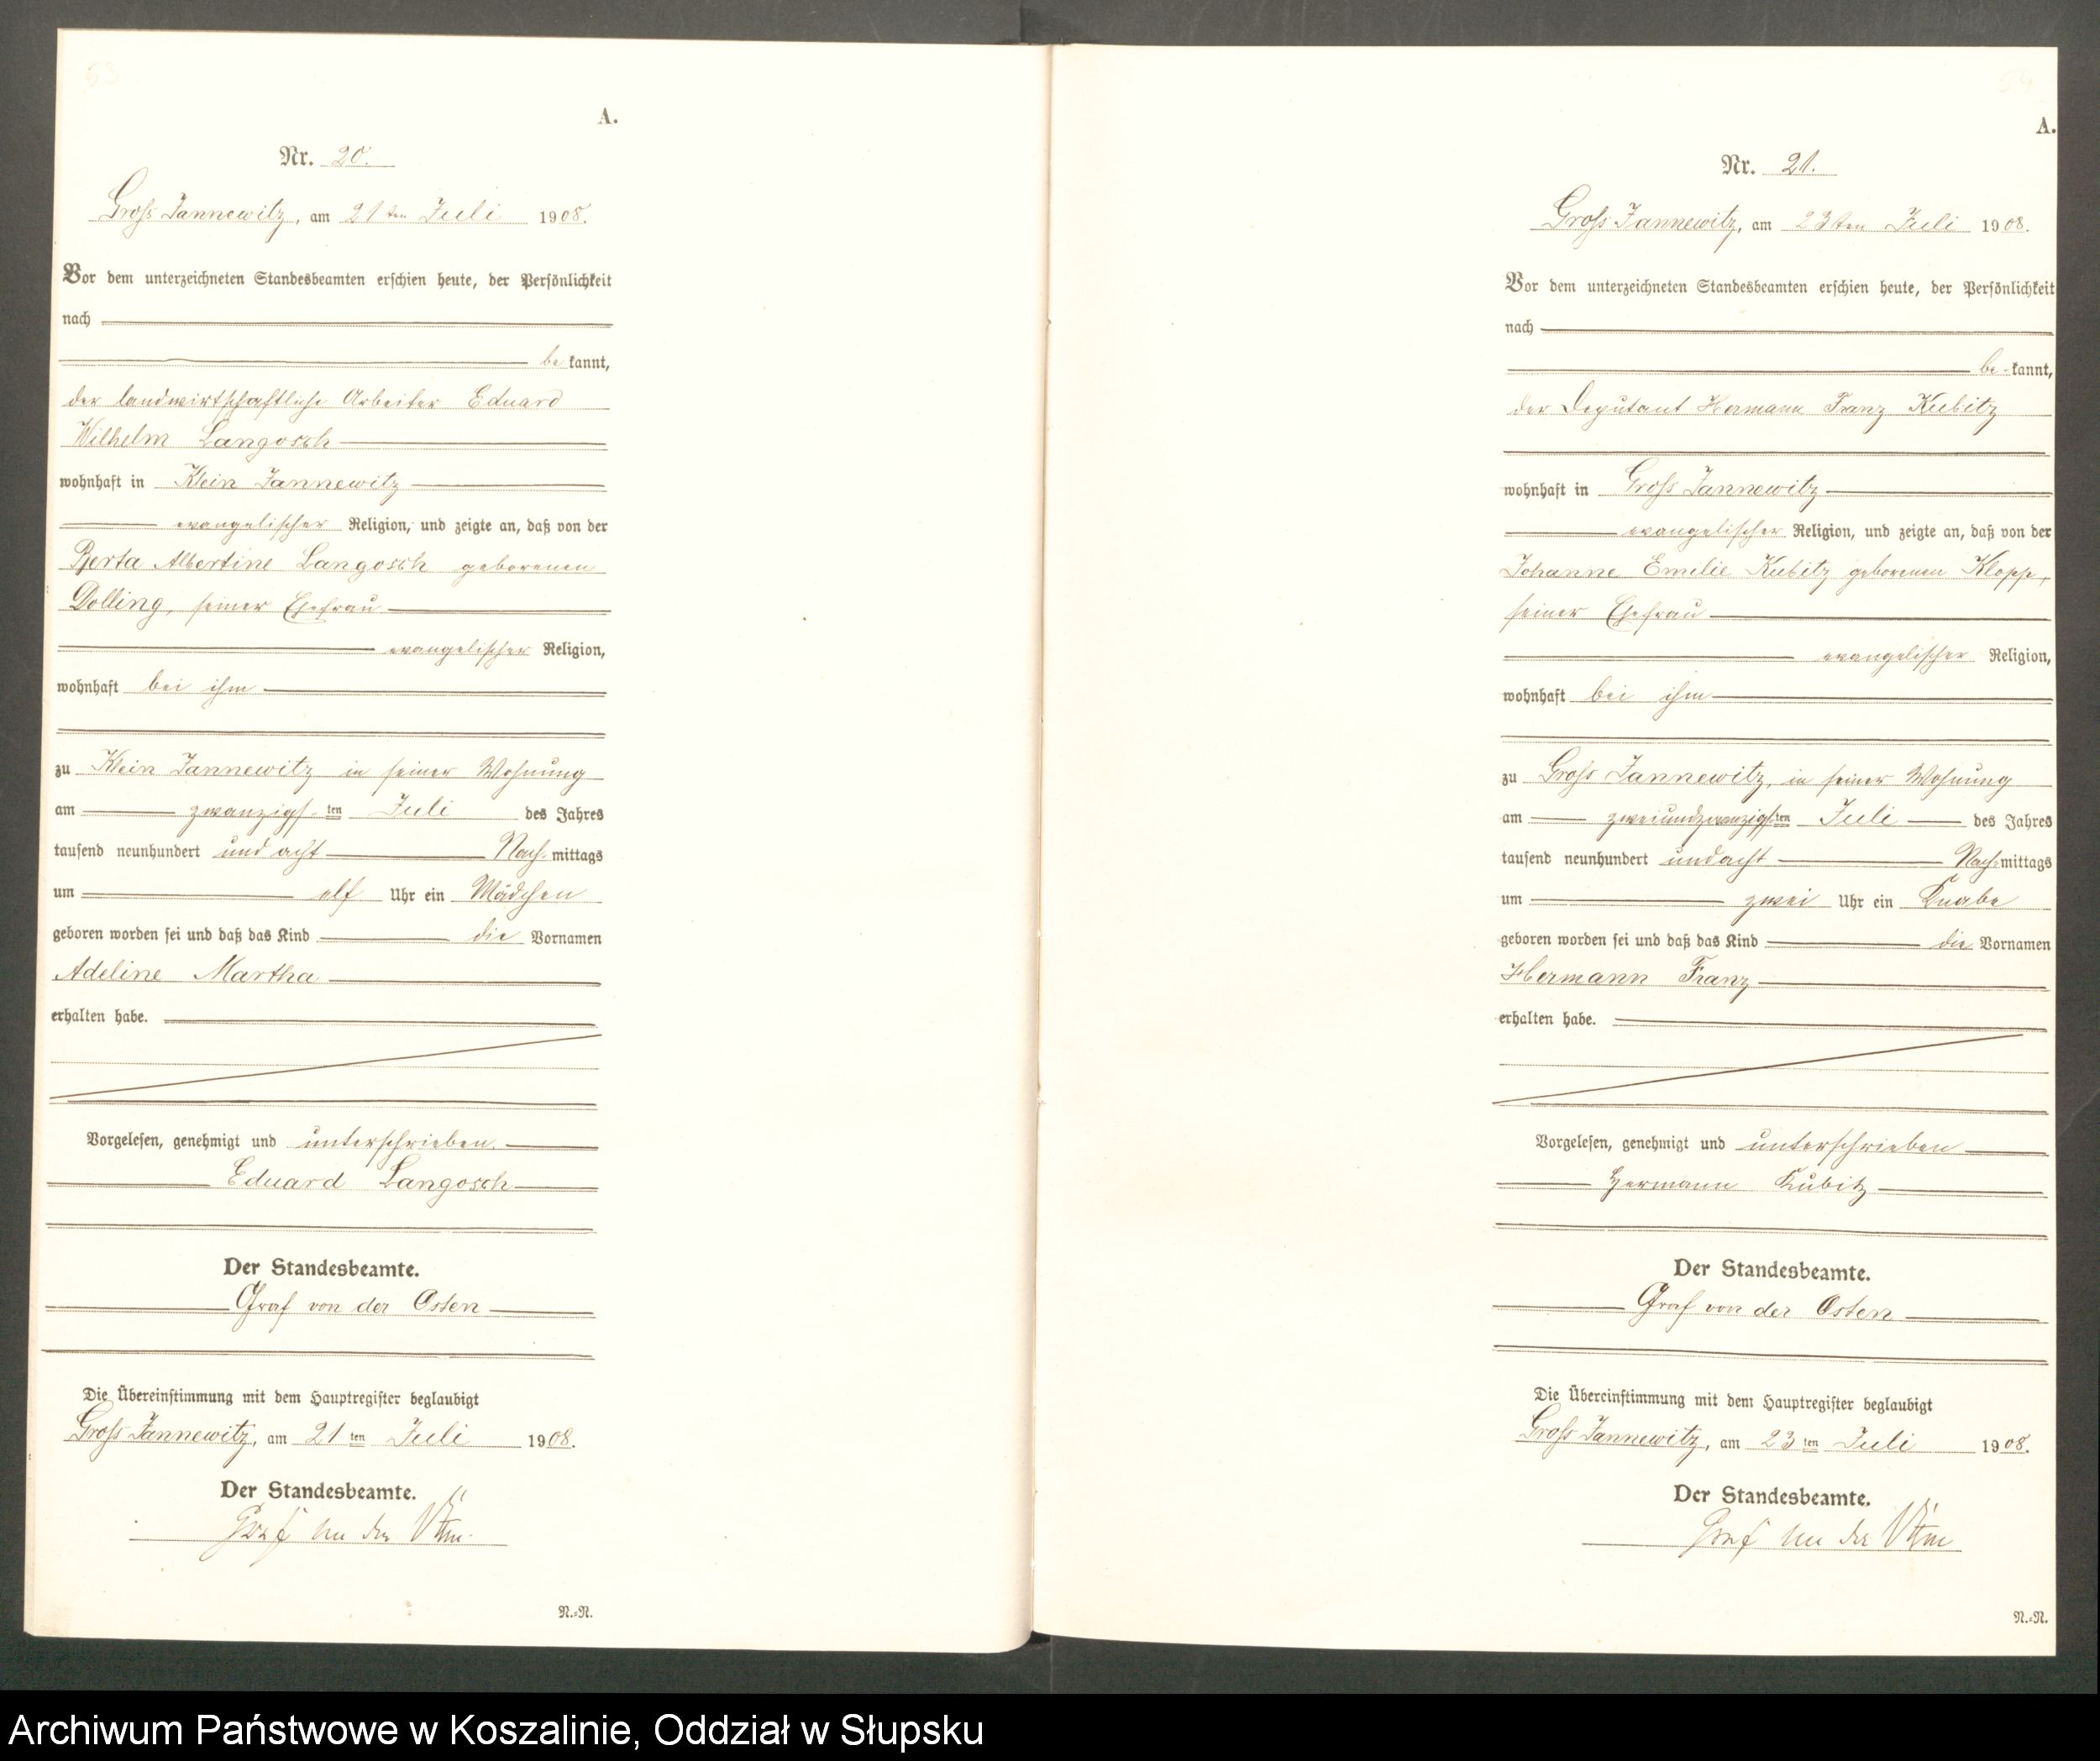 53
A.
Nr. 20.
Gross Jannewitz, am 21ten Juli 1908.
Vor dem unterzeichneten Standesbeamten erschien heute, der Persönlichkeit
nach
be kannt,
der landwirtschaftliche Arbeiter Eduard
Wilhelm Langosch
wohnhaft in Klein Jannewitz
evangelischer Religion, und zeigte an, daß von der
Berta Albertine Langosch geborenen
Dolling, seiner Ehefrau
evangelischer Religion,
wohnhaft bei ihm
zu Klein Jannewitz in seiner Wohnung
am zwanzigs- ten Juli des Jahres
tausend neunhundert und acht Nach- mittags
um elf Uhr ein Mädchen
geboren worden sei und daß das Kind die Vornamen
Adeline Martha
erhalten habe.
Vorgelesen, genehmigt und unterschrieben.
Eduard Langosch
Der Standesbeamte.
Graf von der Osten
Die Übereinstimmung mit dem Hauptregister beglaubigt
Gross Jannewitz, am 21 ten Juli 1908.
Der Standesbeamte.
Graf von der Osten
N.=N.
54
A.
Nr. 21.
Gross Jannewitz, am 23ten Juli 1908.
Vor dem unterzeichneten Standesbeamten erschien heute, der Persönlichkeit
nach
be- kannt,
der Deputant Hermann Franz Kubitz
wohnhaft in Gross Jannewitz
evangelischer Religion, und zeigte an, daß von der
Johanne Emilie Kubitz geborenen Klopp,
seiner Ehefrau
evangelischer Religion,
wohnhaft bei ihm
zu Gross Jannewitz, in seiner Wohnung
am zweiundzwanzigs- ten Juli des Jahres
tausend neunhundert undacht Nach- mittags
um zwei Uhr ein Knabe
geboren worden sei und daß das Kind die Vornamen
Hermann Franz
erhalten habe.
Vorgelesen, genehmigt und unterschrieben
Hermann Kubitz
Der Standesbeamte.
Graf von der Osten
Die Übereinstimmung mit dem Hauptregister beglaubigt
Gross Jannewitz, am 23 ten Juli 1908.
Der Standesbeamte.
Graf von der Osten
N.=N.
Archiwum Państwowe w Koszalinie, Oddział w Słupsku